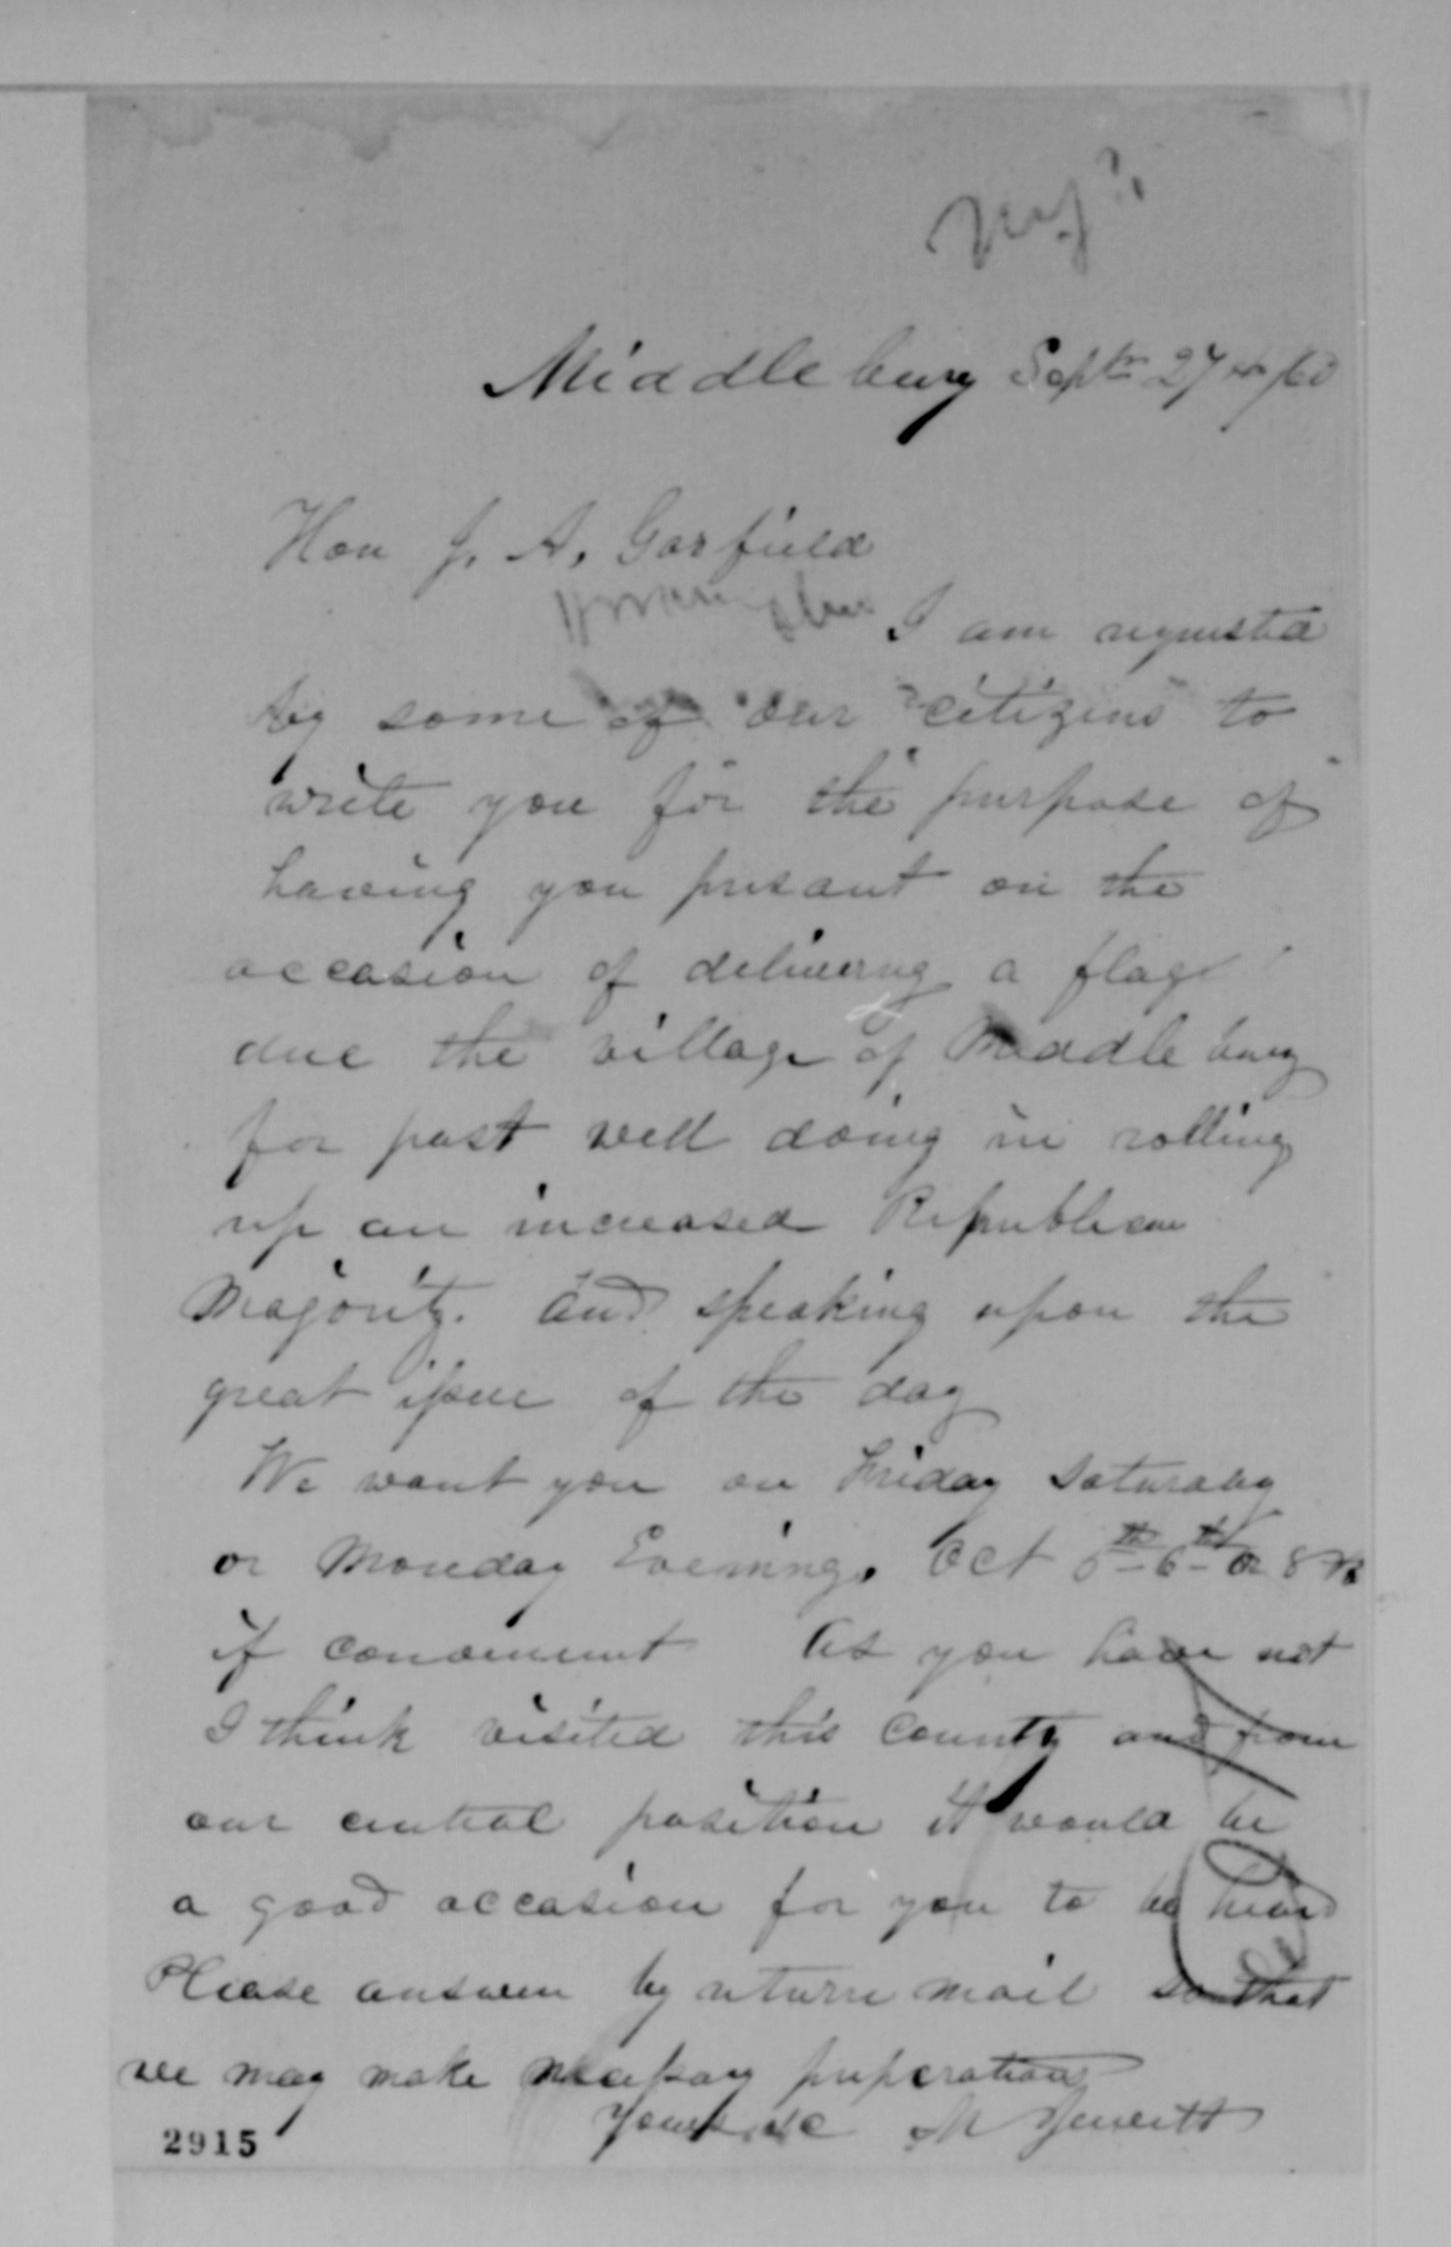 Middlebury Septr 27th /60
Hon J. A. Garfield
I am requested
by some of our citizens to
write you for the purpose of
having you presant on the
occasion of delivering a flag
due the village of Middlebury
for past well doing in rolling
up an increased Republican
Majority. and speaking upon the
great issue of the day
We want you on Friday Saturday
or Monday Evening. Oct 5th 6th or 8th
if convenient As you have not
I think visited this County and from
our central position it would be
a good occasion for you to be heard
Please answer by return mail so that
we may make necessary preperation
Yours &c M Jewett
2915